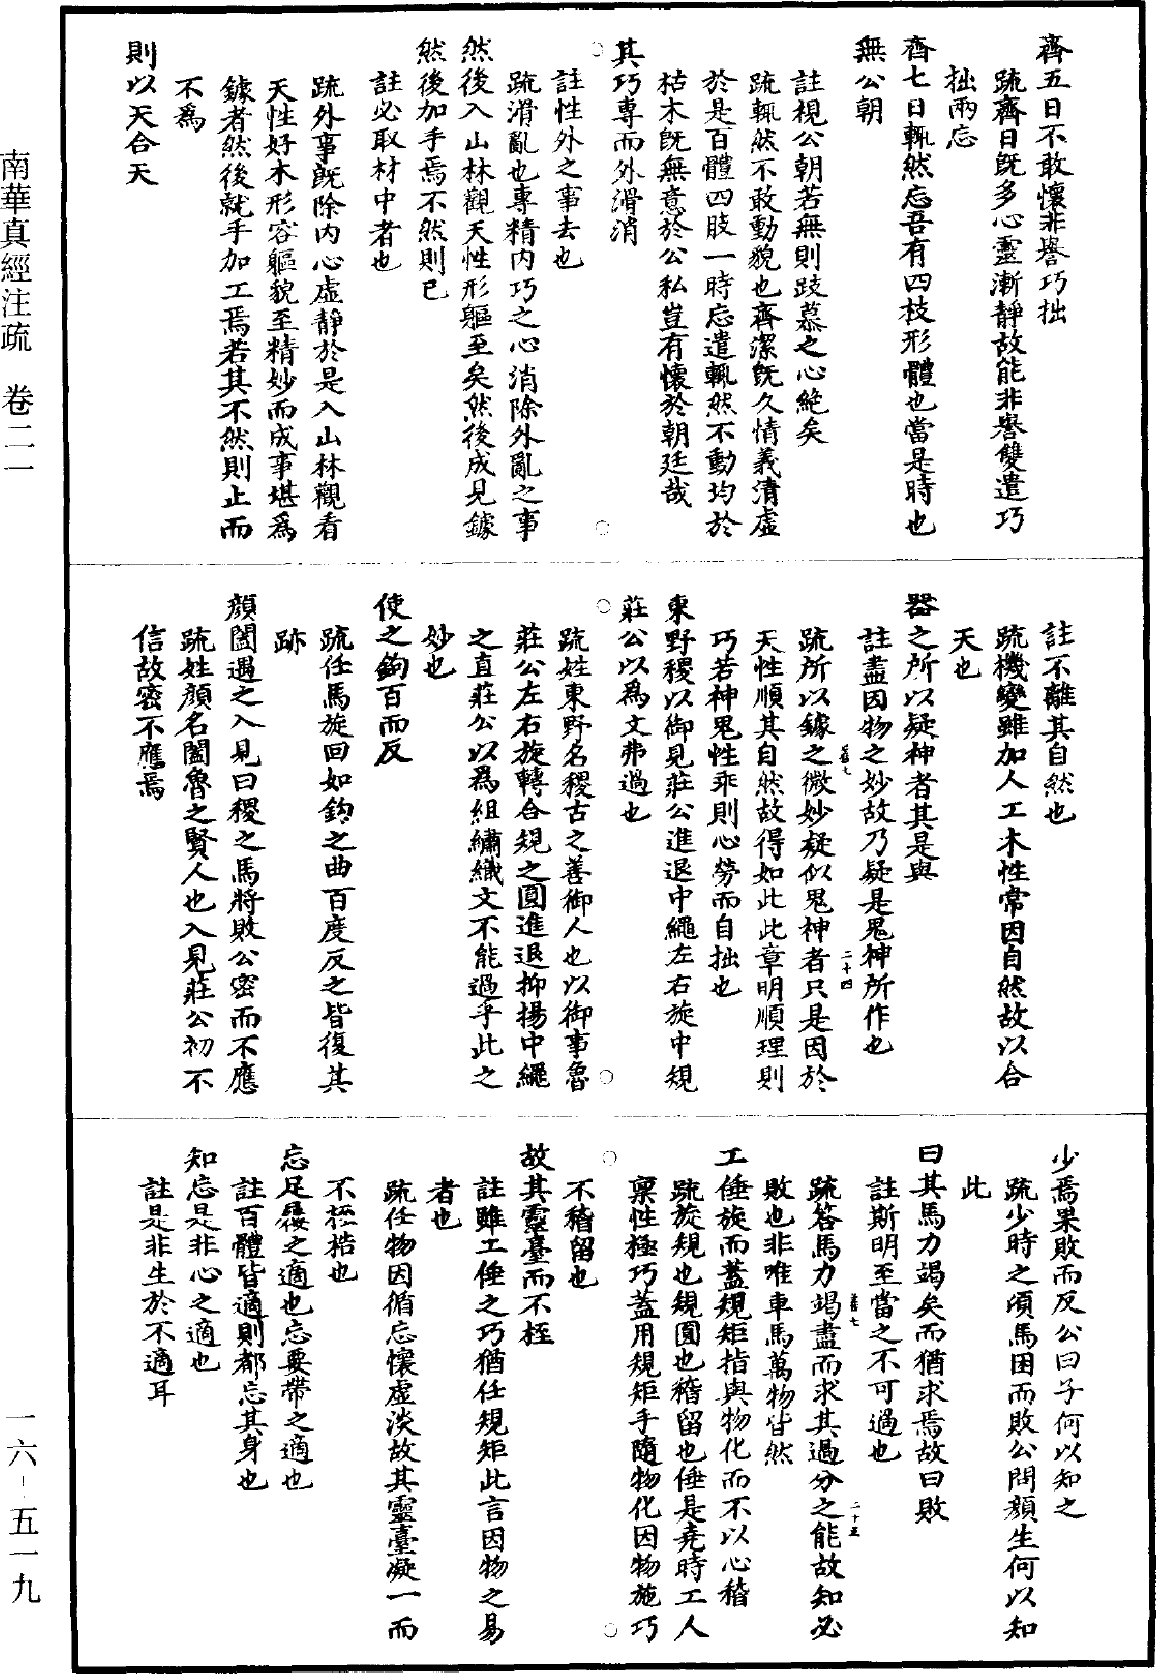 齊五日不敢懷非譽巧拙
疏齋日既多心靈漸靜故能非譽雙遣巧
拙兩忘
齊七日輒然忘吾有四枝形體也當是時也
無公朝
註視公朝若無則跂慕之心絶矣
疏輒然不敢動貌也齊潔既久情義清虛
於是百體四肢一時忘遣輒然不動均於
枯木既無意於公私豈有懷於朝廷哉
其巧專而外滑消
註性外之事去也
疏滑亂也專精内巧之心消除外亂之事
然後入山林觀天性形軀至矣然後成見鐻
然後加手焉不然則已
註必取材中者也
疏外事既除内心虛靜於是入山林觀看
天性好木形容軀貌至精妙而成事堪爲
鐻者然後就手加工焉若其不然則止而
不爲
則以天合天
註不離其自然也
疏機變雖加人工木性常因自然故以合
天也
器之所以疑神者其是與
註盡因物之妙故乃疑是鬼神所作也
疏所以鐻之微妙疑似鬼神者只是因於
天性順其自然故得如此此章明順理則
巧若神鬼性乖則心勞而自拙也
東野稷以御見莊公進退中繩左右旋中規
莊公以爲文弗過也
疏姓東野名稷古之善御人也以御事魯
莊公左右旋轉合規之圓進退抑揚中繩
之直莊公以為組繡織文不能過乎此之
妙也
使之鉤百而反
疏任馬旋回如鉤之曲百度反之皆復其
跡
顔闔遇之入見曰稷之馬將敗公密而不應
疏姓顔名闔魯之賢人也入見莊公初不
信故密不應焉
少焉果敗而反公曰子何以知之
疏少時之頃馬困而敗公問顔生何以知
此
曰其馬力竭矣而猶求焉故曰敗
註斯明至當之不可過也
疏答馬力竭盡而求其過分之能故知必
敗也非唯車馬萬物皆然
工倕旋而蓋規矩指與物化而不以心稽
疏旋規也規圓也稽留也倕是堯時工人
稟性極巧蓋用規矩手隨物化因物施巧
不稽留也
故其靈臺而不桎
註雖工倕之巧猶任規矩此言因物之易
者也
疏任物因循忘懷虛淡故其靈臺凝一而
不桎梏也
忘足屨之適也忘要帶之適也
註百體皆適則都忘其身也
知忘是非心之適也
註是非生於不適耳
南華真經注疏　卷二一
一六－五一九